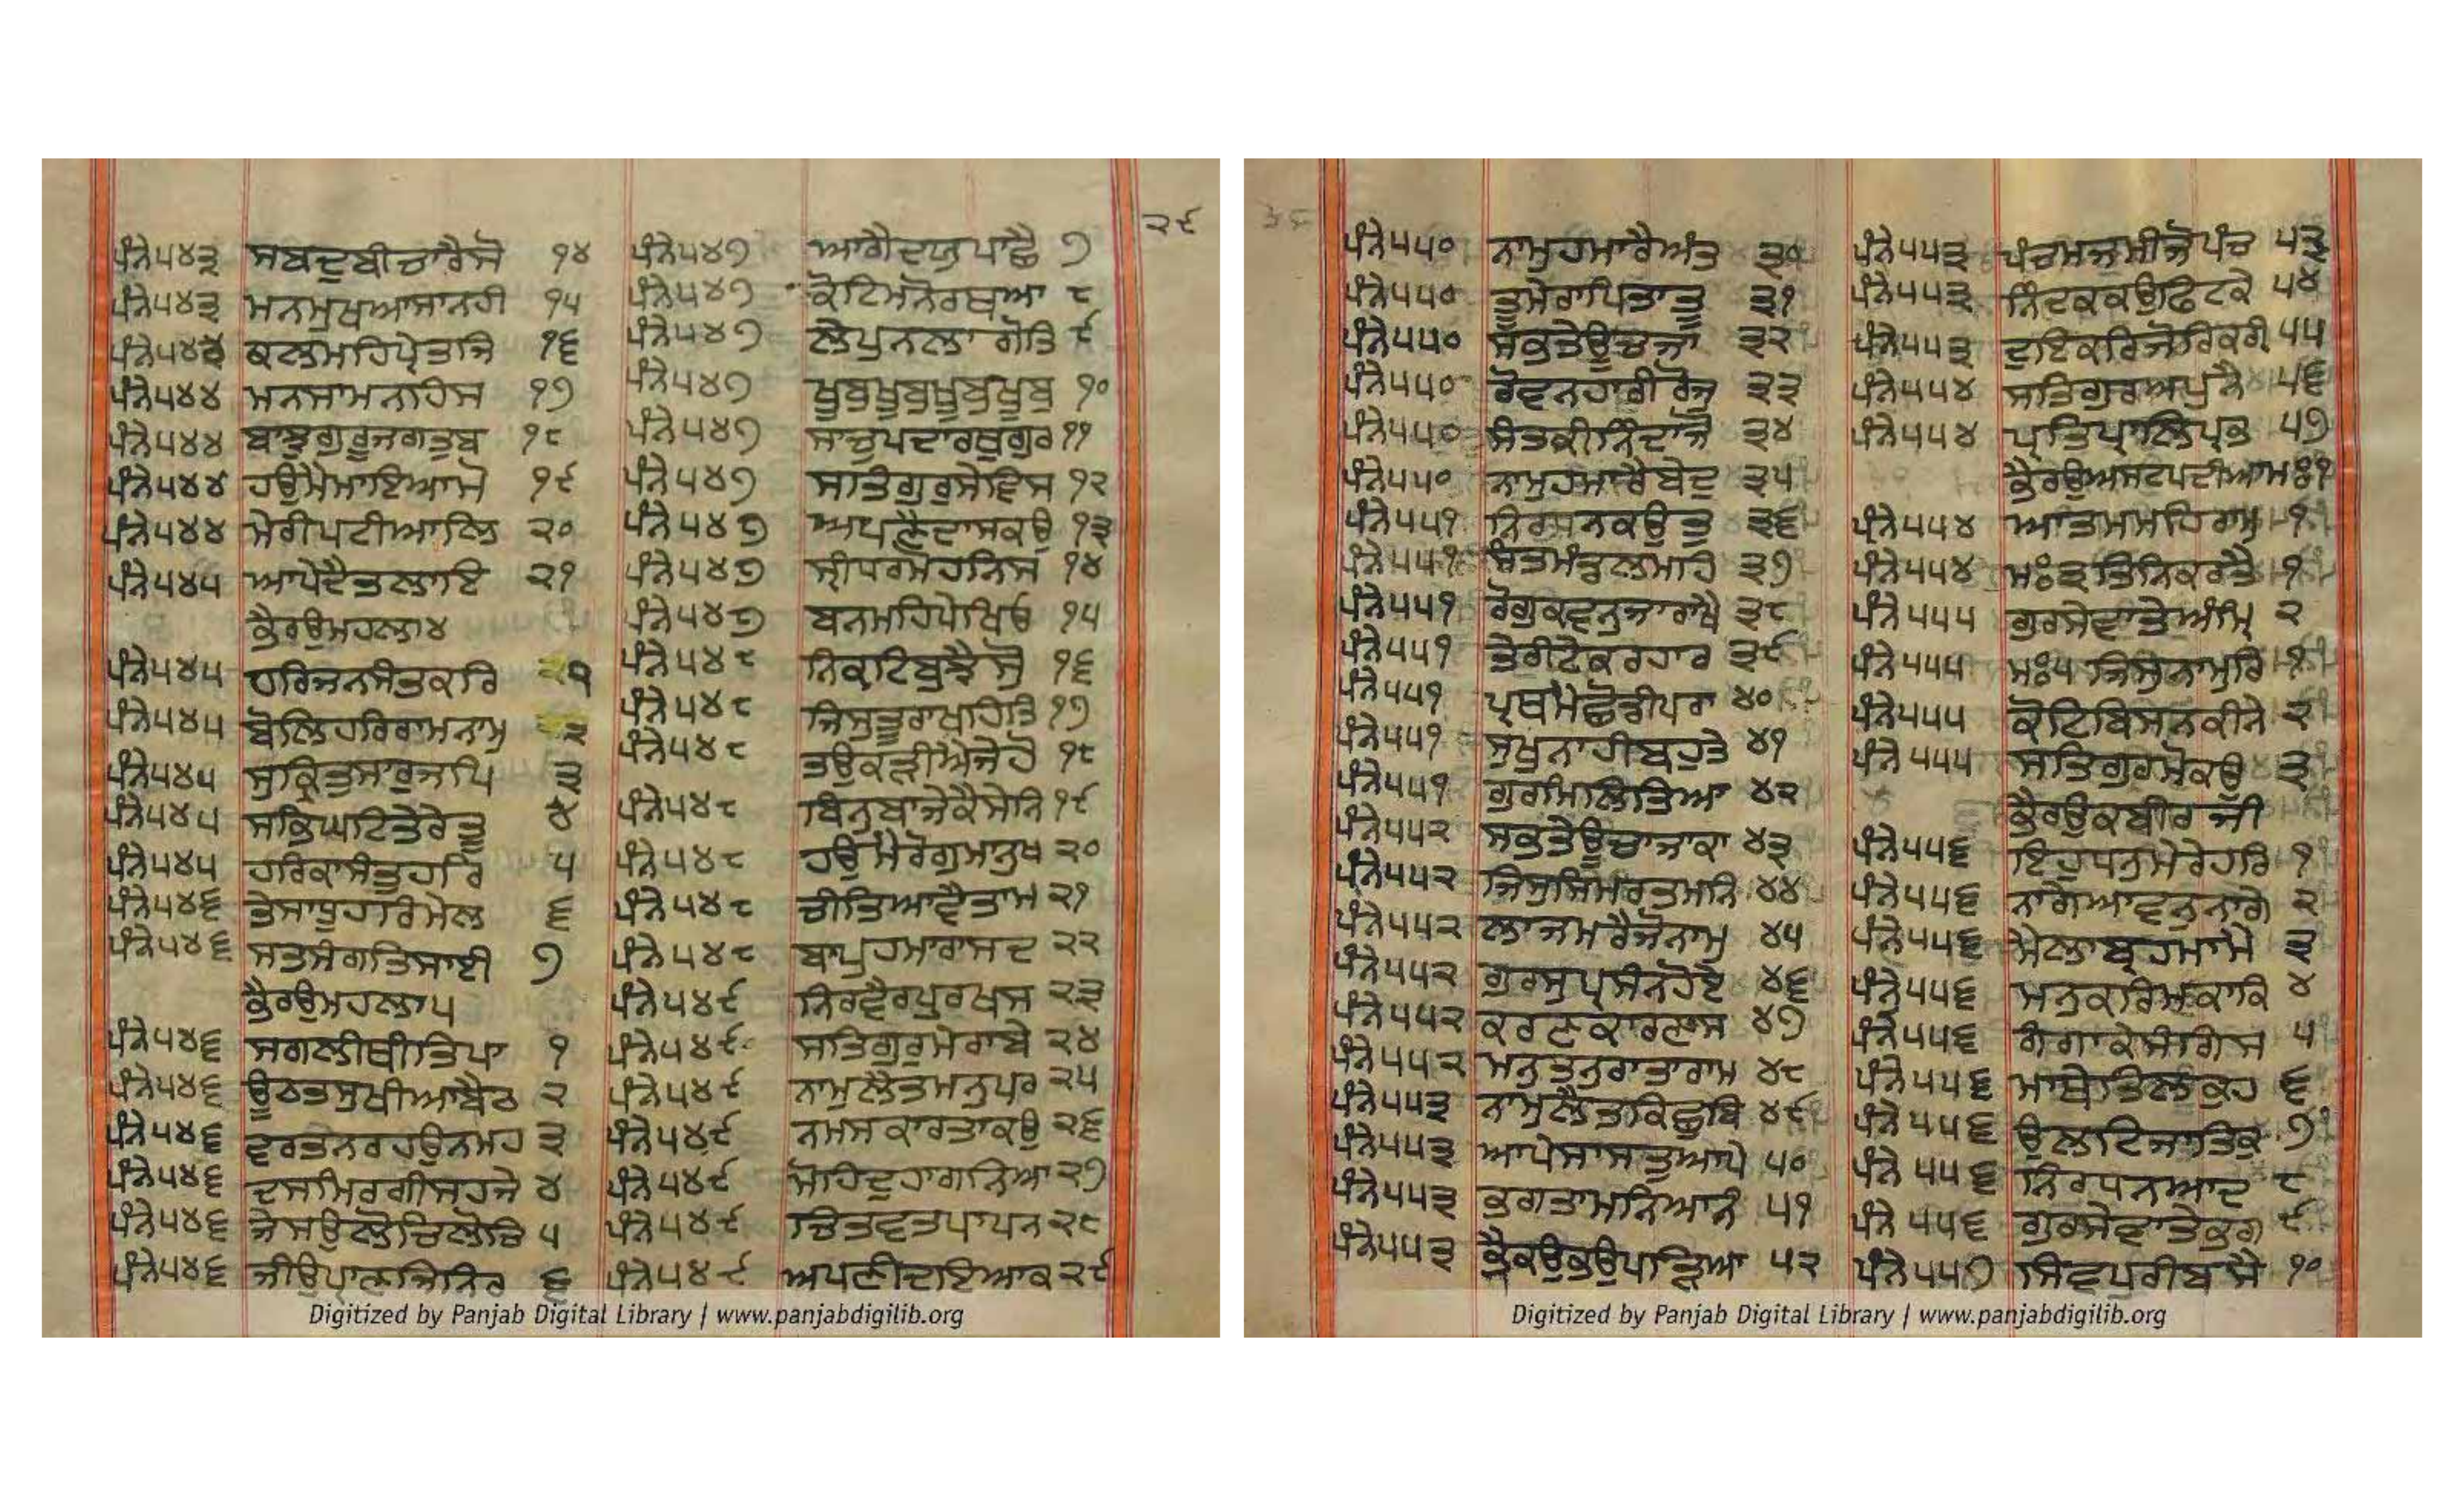 ਪੰਨੇ ੫੪੩ ਸਬਦੁਬੀਚਾਰੈਸੋ ੧੪
ਪੰਨੇ ੫੪੩ ਮਨਮੁਖਆਸਾਨਹੀ ੧੫
ਪੰਨੇ ੫੪੪ ਕਲਮਹਿਪ੍ਰੇਤਜਿ ੧੬
ਪੰਨੇ ੫੪੪ ਮਨਸਾਮਨਹਿਸ ੧੭
ਪੰਨੇ ੫੪੪ ਬਾਝੁਗੁਰੂਜਗਤੁਬ ੧੮
ਪੰਨੇ ੫੪੪ ਹਉਮੈਮਾਇਆਮੋ ੧੯
ਪੰਨੇ ੫੪੪ ਮੇਰੀਪਟੀਆਲਿ ੨੦
ਪੰਨੇ ੫੪੫ ਆਪੇਦੈਤਲਾਇ ੨੧
ਭੈਰਉਮਹਲਾ੪
ਪੰਨੇ ੫੪੫ ਹਰਿਜਨਸੰਤਕਰਿ ੧
ਪੰਨੇ ੫੪੫ ਬੋਲਿਹਰਿਰਾਮਨਾਮੁ ੨
ਪੰਨੇ ੫੪੫ ਸੁਕ੍ਰਿਤੁਸਾਰੁਜਪਿ ੩
ਪੰਨੇ ੫੪੫ ਸਭਿਘਟਿਤੇਰੇਤੂ ੪
ਪੰਨੇ ੫੪੫ ਹਰਿਕਾਸੰਤੁਹਰਿ ੫
ਪੰਨੇ ੫੪੬ ਤੇਸਾਧੂਹਰਿਮੇਲ ੬
ਪੰਨੇ ੫੪੬ ਸਤਸੰਗਤਿਸਾਈ ੭
ਭੈਰਉਮਹਲਾ੫
ਪੰਨੇ ੫੪੬ ਸਗਲੀਥੀਤਿਪਾ ੧
ਪੰਨੇ ੫੪੬ ਊਠਤਸੁਖੀਆਬੈਠ ੨
ਪੰਨੇ ੫੪੬ ਵਰਤਨਰਹਉਨਮਹ ੩
ਪੰਨੇ ੫੪੬ ਦਸਮਿਰਗੀਸਹਜੇ ੪
ਪੰਨੇ ੫੪੬ ਜੇਸਉਲੋਚਿਲੋਚਿ ੫
ਪੰਨੇ ੫੪੬ ਜੀਉਪ੍ਰਾਣਜਿਨਿਰ ੬
ਪੰਨੇ ੫੪੭ ਆਗੈਦਯੁਪਾਛੈ ੭
ਪੰਨੇ ੫੪੭ ਕੋਟਿਮਨੋਰਥਆ ੮
ਪੰਨੇ ੫੪੭ ਲੇਪੁਨਲਾਗੋਤਿ ੯
ਪੰਨੇ ੫੪੭ ਖੂਬੁਖੂਬੁਖੂਬੁਖੂਬੁ ੧੦
ਪੰਨੇ ੫੪੭ ਸਾਚੁਪਦਾਰਥੁਗੁਰ ੧੧
ਪੰਨੇ ੫੪੭ ਸਤਿਗੁਰੁਸੇਵਿਸ ੧੨
ਪੰਨੇ ੫੪੭ ਅਪਣੇਦਾਸਕਉ ੧੩
ਪੰਨੇ ੫੪੭ ਸ੍ਰੀਧਰਮੋਹਨਿਸ ੧੪
ਪੰਨੇ ੫੪੭ ਬਨਮਹਿਪੇਖਿਓ ੧੫
ਪੰਨੇ ੫੪੮ ਨਿਕਟਿਬੁਝੈਸੋ ੧੬
ਪੰਨੇ ੫੪੮ ਜਿਸੁਤੂਰਾਖਹਿਤਿ ੧੭
ਪੰਨੇ ੫੪੮ ਤਉਕੜੀਐਜੇਹੋ ੧੮
ਪੰਨੇ ੫੪੮ ਬਿਨੁਬਾਜੇਕੈਸੋਨਿ ੧੯
ਪੰਨੇ ੫੪੮ ਹਉਮੈਰੋਗੁਮਾਨੁਖ ੨੦
ਪੰਨੇ ੫੪੮ ਚੀਤਿਆਵੈਤਾਮ ੨੧
ਪੰਨੇ ੫੪੮ ਬਾਪੁਹਮਾਰਾਸਦ ੨੨
ਪੰਨੇ ੫੪੯ ਨਿਰਵੈਰਪੁਰਖਸ ੨੩
ਪੰਨੇ ੫੪੯ ਸਤਿਗੁਰੁਮੇਰਾਬੇ ੨੪
ਪੰਨੇ ੫੪੯ ਨਾਮੁਲੈਤਮਨੁਪਰ ੨੫
ਪੰਨੇ ੫੪੯ ਨਮਸਕਾਰਤਾਕਉ ੨੬
ਪੰਨੇ ੫੪੯ ਮੋਹਿਦੁਹਾਗਨਿਆ ੨੭
ਪੰਨੇ ੫੪੯ ਚਿਤਵਤਪਾਪਨ ੨੮
ਪੰਨੇ ੫੪੯ ਅਪਣੀਦਇਆਕ ੨੯
੨੯
Digitized by Panjab Digital Library | www.panjabdigilib.org
ਪੰਨੇ ੫੫੦ ਨਾਮੁਹਮਾਰੈਅੰਤ ੩੦
ਪੰਨੇ ੫੫੦ ਤੂਮੇਰਾਪਿਤਾਤੂ ੩੧
ਪੰਨੇ ੫੫੦ ਸਭਤੇਊਚਜਾ ੩੨
ਪੰਨੇ ੫੫੦ ਰੋਵਨਹਾਰੀਰੋਜੁ ੩੩
ਪੰਨੇ ੫੫੦ ਸੰਤਕੀਨਿੰਦਾਜੋ ੩੪
ਪੰਨੇ ੫੫੦ ਨਾਮੁਹਮਾਰੈਬੇਦ ੩੫
ਪੰਨੇ ੫੫੧ ਨਿਰਧਨਕਉਤੁ ੩੬
ਪੰਨੇ ੫੫੧ ਸੰਤਮੰਡਲਮਹਿ ੩੭
ਪੰਨੇ ੫੫੧ ਰੋਗੁਕਵਨੁਜਾਰਾਖੈ ੩੮
ਪੰਨੇ ੫੫੧ ਤੇਰੀਟੇਕਰਹਾਰ ੩੯
ਪੰਨੇ ੫੫੧ ਪ੍ਰਥਮੇਛੋਡੀਪਰਾ ੪੦
ਪੰਨੇ ੫੫੧ ਸੁਖੁਨਾਹੀਬਹੁਤੇ ੪੧
ਪੰਨੇ ੫੫੧ ਗੁਰਮਿਲਿਤਿਆ ੪੨
ਪੰਨੇ ੫੫੨ ਸਭਤੇਊਚਾਜਾਕਾ ੪੩
ਪੰਨੇ ੫੫੨ ਜਿਸੁਸਿਮਰਤਮਨਿ ੪੪
ਪੰਨੇ ੫੫੨ ਲਾਜਮਰੈਜੋਨਾਮੁ ੪੫
ਪੰਨੇ ੫੫੨ ਗੁਰਸੁਪ੍ਰਸੰਨਹੋਏ ੪੬
ਪੰਨੇ ੫੫੨ ਕਰਣਕਾਰਣਸ ੪੭
ਪੰਨੇ ੫੫੨ ਮਨੁਤਨੁਰਾਤਾਰਾਮ ੪੮
ਪੰਨੇ ੫੫੩ ਨਾਮੁਲੈਤਕਿਛੁਬਿ ੪੯
ਪੰਨੇ ੫੫੩ ਆਪੇਸਾਸਤੁਆਪੇ ੫੦
ਪੰਨੇ ੫੫੩ ਭਗਤਾਮਨਿਆਨੰ ੫੧
ਪੰਨੇ ੫੫੩ ਭੈਕਉਭਉਪੜਿਆ ੫੨
ਪੰਨੇ ੫੫੩ ਪੰਚਮਜਮੀਜੋਪੰਚ ੫੩
ਪੰਨੇ ੫੫੩ ਨਿੰਦਕਕਉਫਿਟਕੇ ੫੪
ਪੰਨੇ ੫੫੩ ਦੁਇਕਰਿਜੋਰਿਕਰੀ ੫੫
ਪੰਨੇ ੫੫੪ ਸਤਿਗੁਰਅਪੁਨੈ ੫੬
ਪੰਨੇ ੫੫੪ ਪ੍ਰਤਿਪਾਲਿਪ੍ਰਭ ੫੭
ਭੈਰਉਅਸਟਪਦੀਆਮਃ੧
ਪੰਨੇ ੫੫੪ ਆਤਮਮਹਿਰਾਮੁ ੧
ਪੰਨੇ ੫੫੪ ਮਃ੩ਤਿਨਿਕਰਤੈ ੧
ਪੰਨੇ ੫੫੫ ਗੁਰਸੇਵਾਤੇਅੰਮ੍ਰਿ ੨
ਪੰਨੇ ੫੫੫ ਮਃ੫ਜਿਸੁਨਾਮੁਰਿ ੧
ਪੰਨੇ ੫੫੫ ਕੋਟਿਬਿਸਨਕੀਨੇ ੨
ਪੰਨੇ ੫੫੫ ਸਤਿਗੁਰਮੋਕਉ ੩
ਭੈਰਉਕਬੀਰਜੀ
ਪੰਨੇ ੫੫੬ ਇਹੁਧਨੁਮੇਰੇਹਰਿ ੧
ਪੰਨੇ ੫੫੬ ਨਾਗੇਆਵਨੁਨਾਗੇ ੨
ਪੰਨੇ ੫੫੬ ਮੈਲਾਬ੍ਰਹਮਾਮੈ ੩
ਪੰਨੇ ੫੫੬ ਮਨੁਕਰਿਮਕਾਕਿ ੪
ਪੰਨੇ ੫੫੬ ਗੰਗਾਕੇਸੰਗਿਸ ੫
ਪੰਨੇ ੫੫੬ ਮਾਥੇਤਿਲਕੁਹ ੬
ਪੰਨੇ ੫੫੬ ਉਲਟਿਜਾਤਿਕੁ ੭
ਪੰਨੇ ੫੫੬ ਨਿਰਧਨਆਦ ੮
ਪੰਨੇ ੫੫੬ ਗੁਰਸੇਵਾਤੇਭਗ ੯
ਪੰਨੇ ੫੫੭ ਸਿਵਪੁਰੀਬਸੈ ੧੦
Digitized by Panjab Digital Library | www.panjabdigilib.org